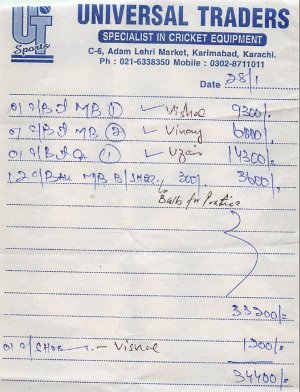 UT
Sports
UNIVERSAL TRADERS
SPECIALIST IN CRICKET EQUIPMENT
C-6, Adam Lehri Market, Karimabad, Karachi.
Ph : 021-6338350 Mobile : 0302-8711011
Date 28/1
01 MB ① ✓ Vishal 9300/.
01 MB ② ✓ Vinay 6000/.
01 ① ✓ Uzair 14300/.
12 MB 300/. 3600/.
Balls for Practice
33200/.
01 Vishal 1200/.
34400/.